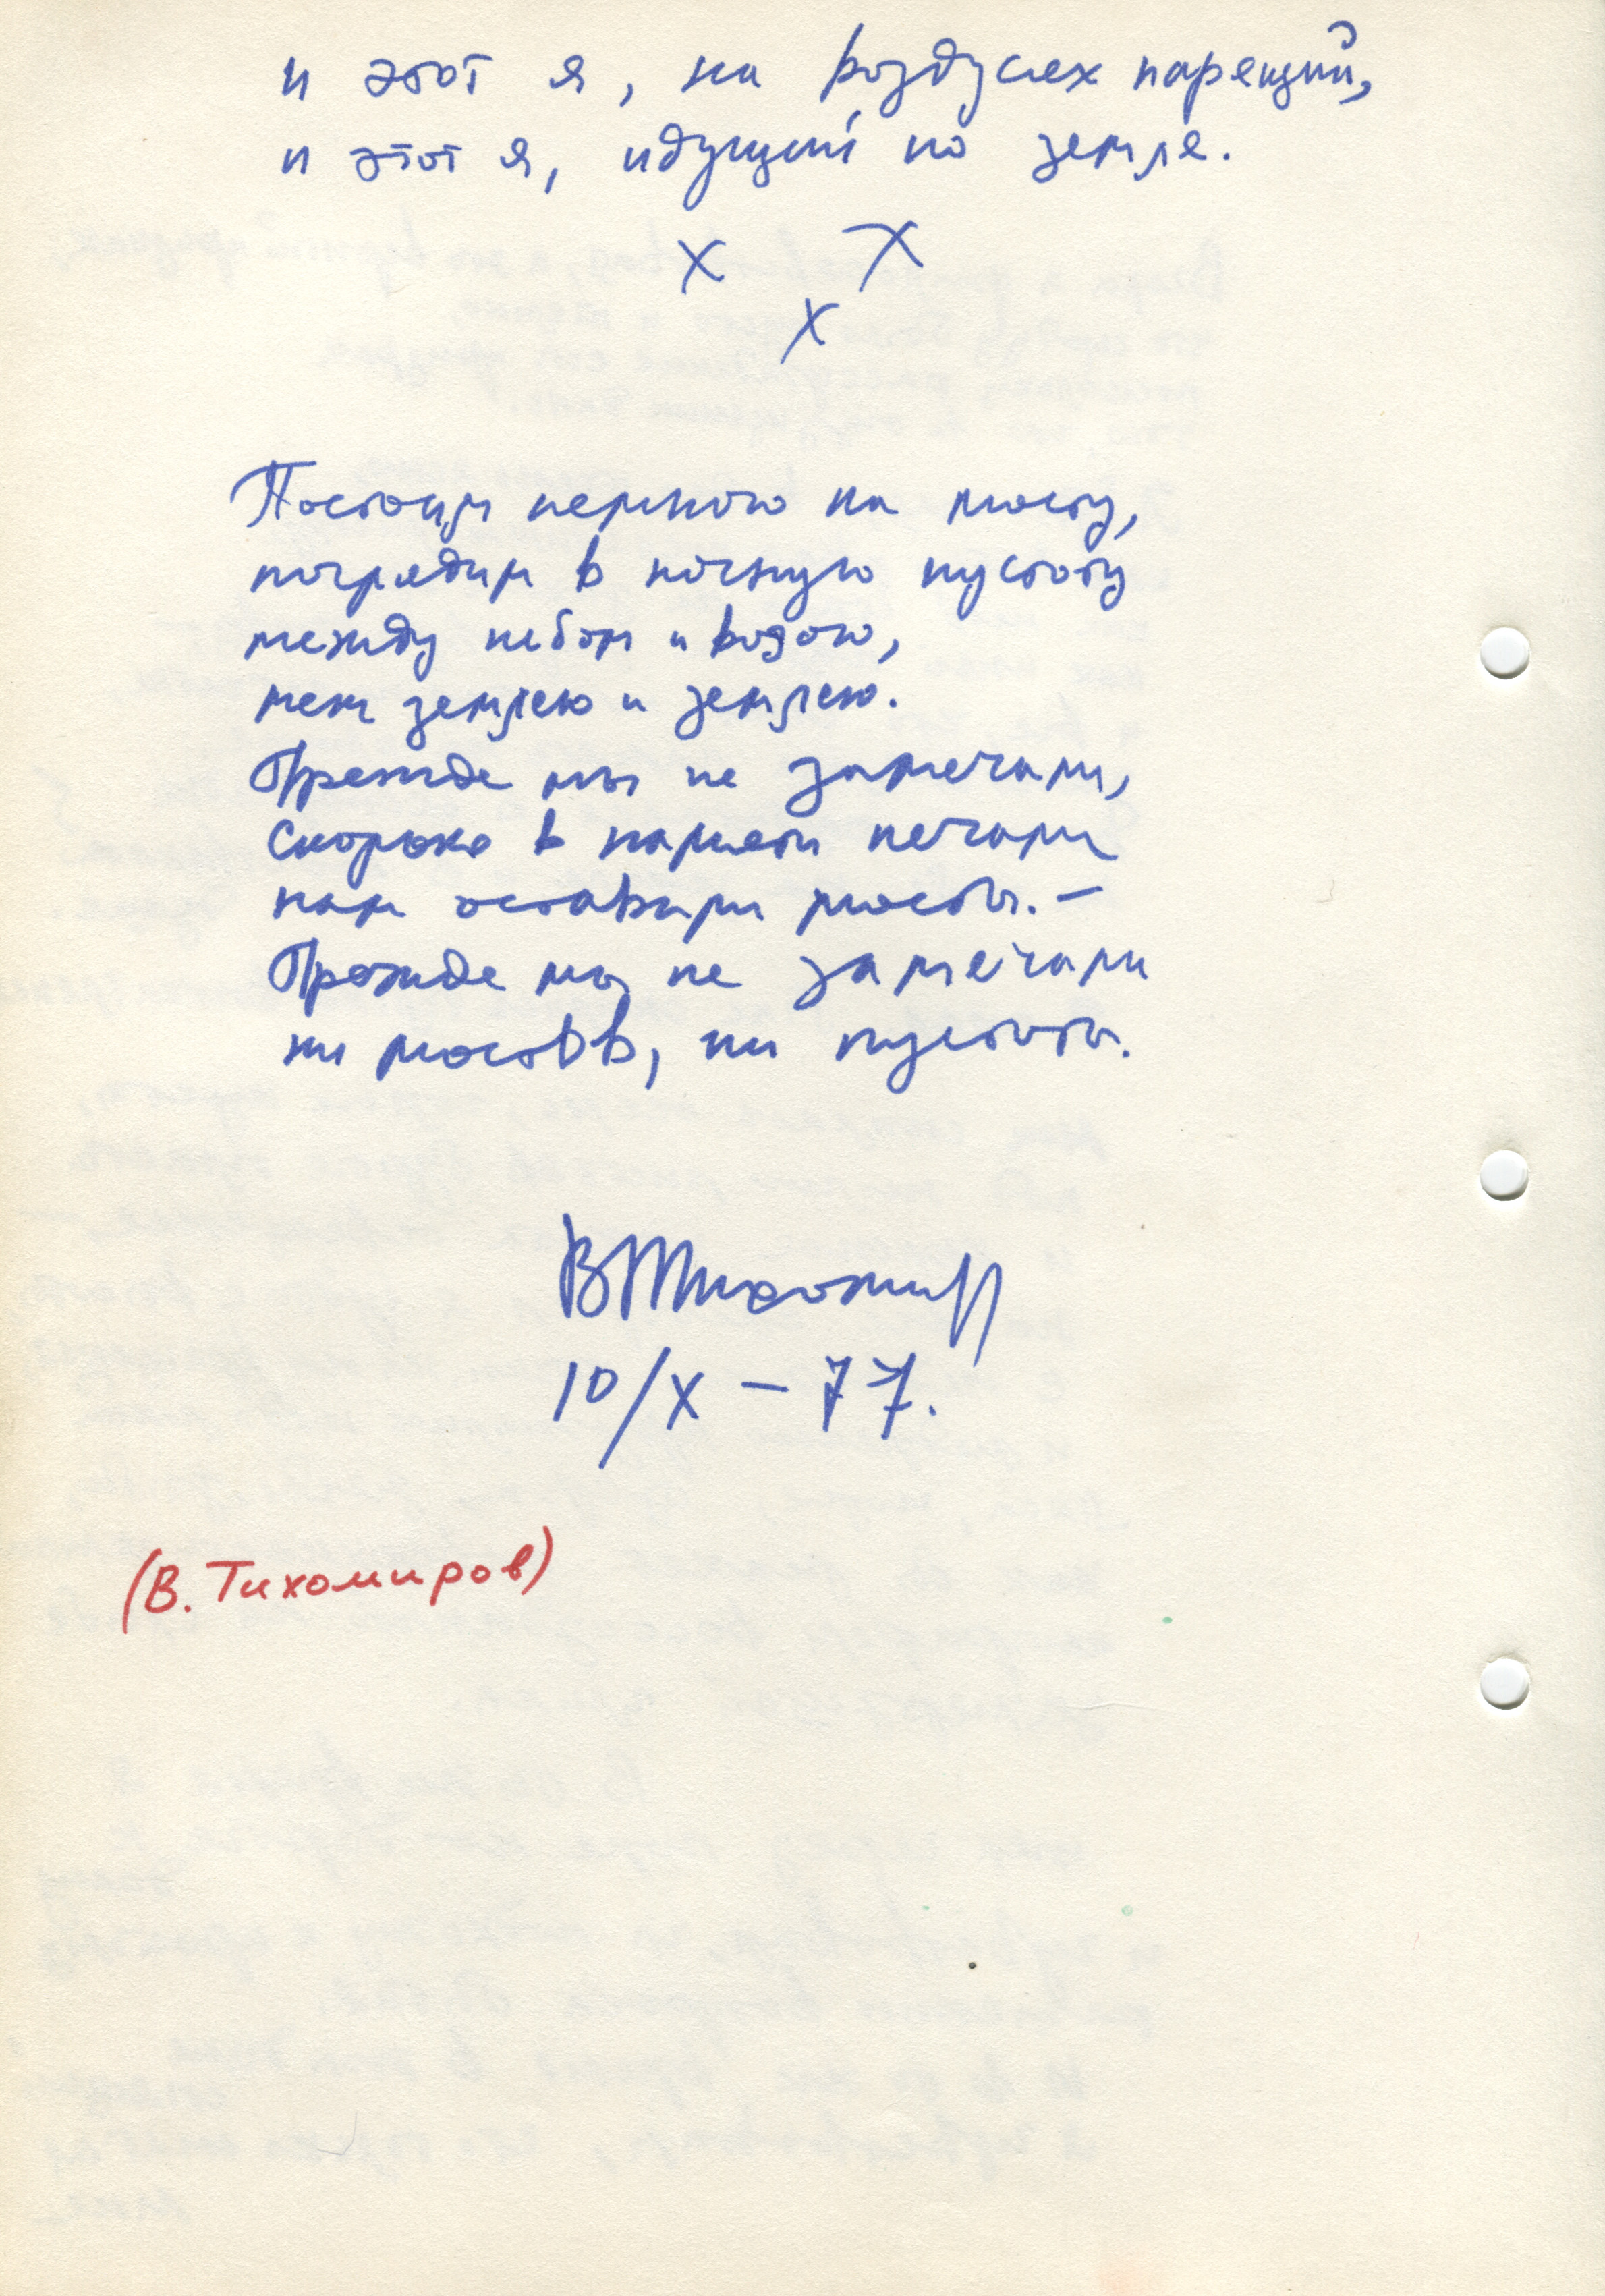 и этот я, на воздусех парящий,
и этот я, идущий по земле.
х х
х
Постоим немного на мосту,
поглядим в ночную пустоту
между небом и водою,
меж землею и землею.
Прежде мы не замечали,
сколько в памяти печали
нам оставили мосты. –
Прежде мы не замечали
ни мостов, ни пустоты.
ВТихомир
10/X – 77.
(В. Тихомиров)